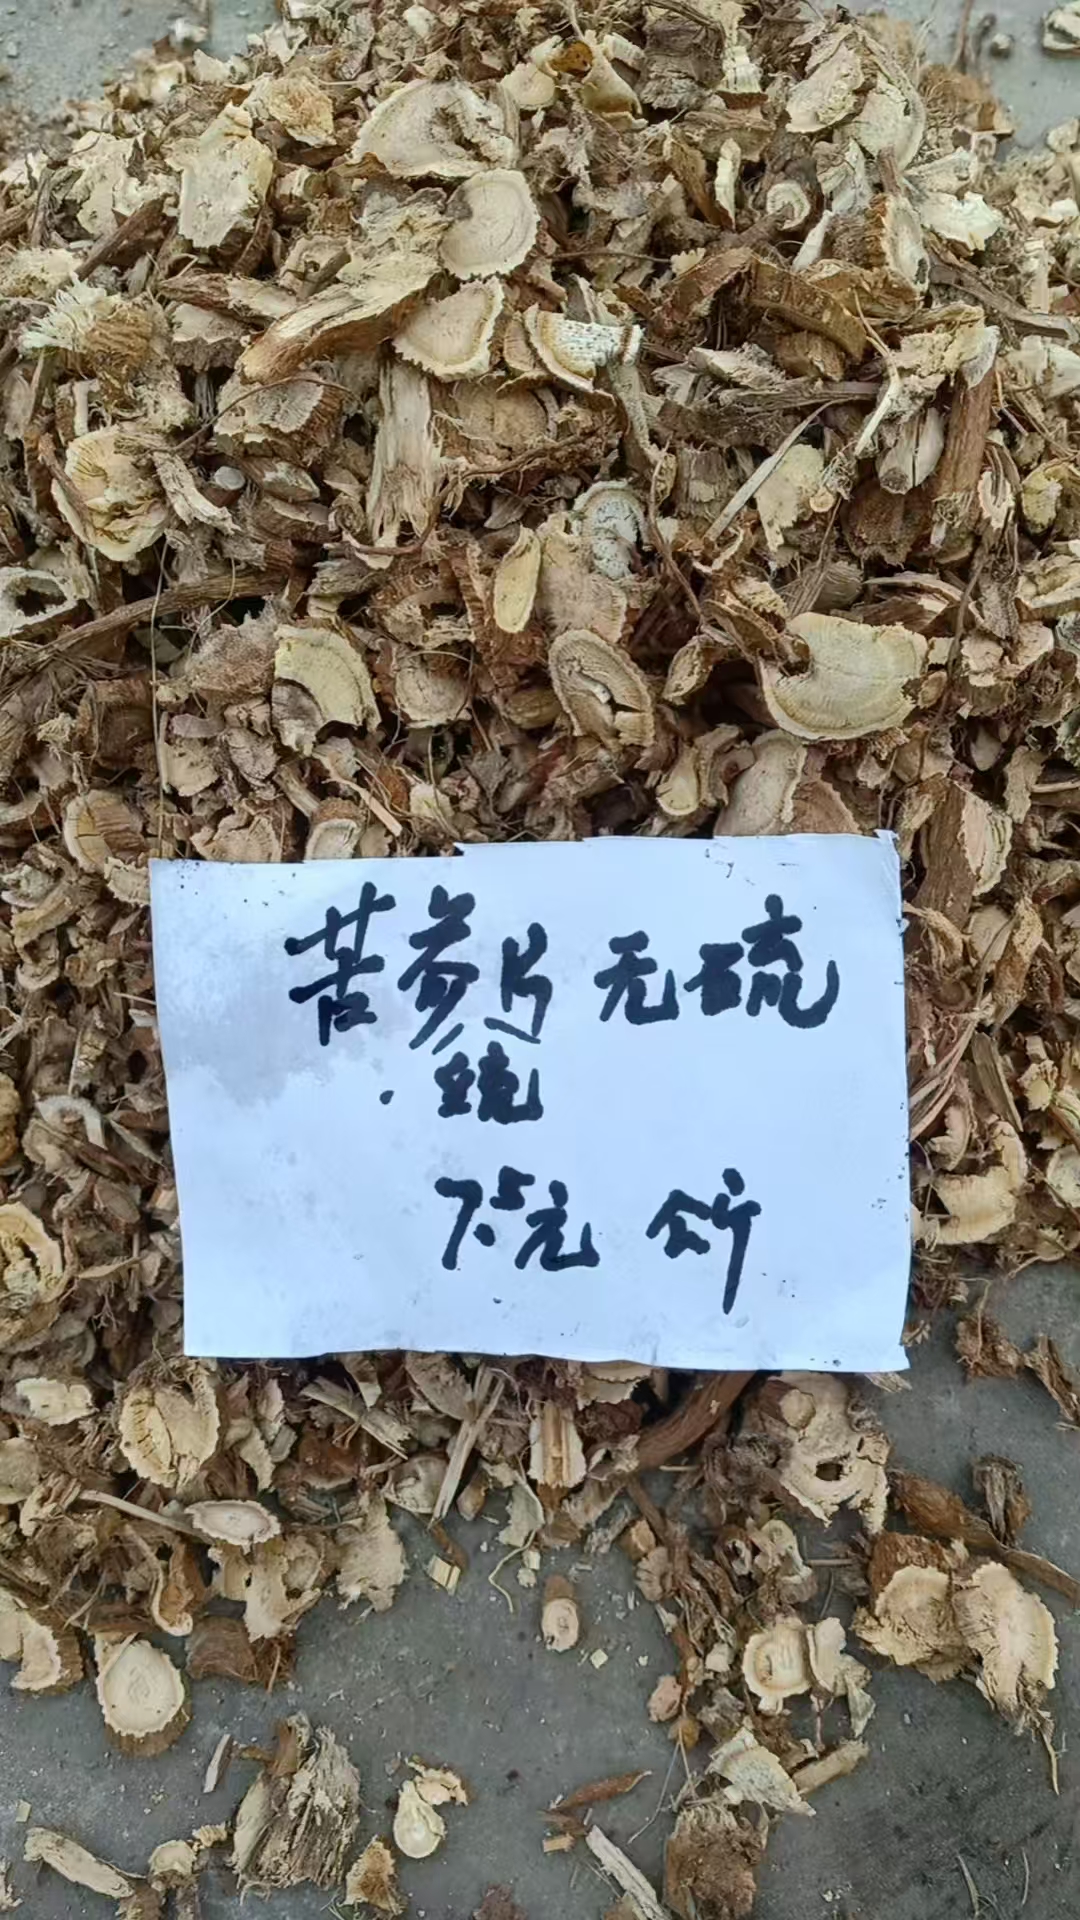 苦参片 无硫
统
7.5元 公斤